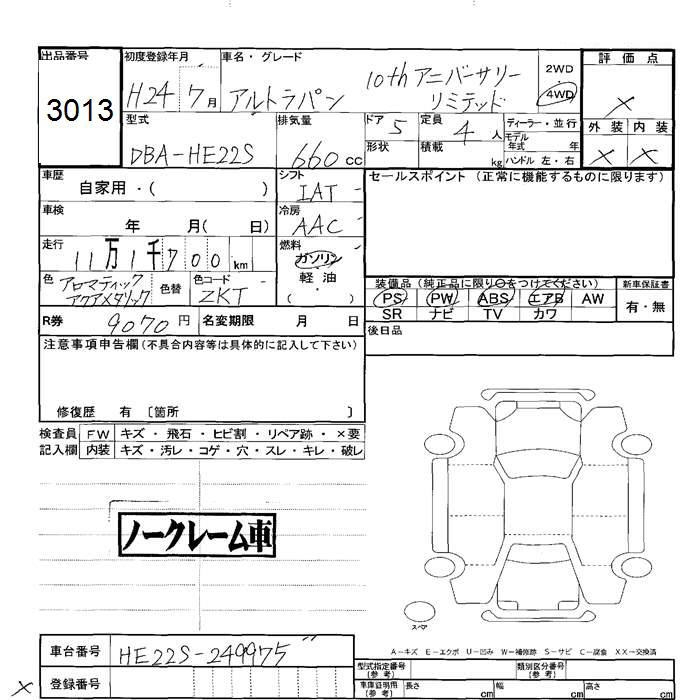 出品番号
3013
初度登録年月
H24 7月
車名・グレード
アルトラパン 10th アニバーサリー
リミテッド
2WD
4WD
評価点
×
外装 内装
× ×
型式
DBA-HE22S
排気量
660 cc
ドア 5
形状
定員 4 人
積載 kg
ディーラー・並行
モデル
年式 年
ハンドル 左・右
車歴
自家用・( )
シフト
IAT
セールスポイント (正常に機能するものに限ります)
車検
年 月( 日)
冷房
AAC
走行
11万1千700 km
燃料
ガソリン
軽油
( )
色 アロマティック
アクアメタリック
色替
色コード
ZKT
装備品(純正品に限り○をつけてください)
PS PW ABS エアB AW
SR ナビ TV カワ
新車保証書
有・無
R券 9070 円
名変期限 月 日
後日品
注意事項申告欄(不具合内容等は具体的に記入して下さい)
修復歴 有 〔箇所 〕
検査員
記入欄
FW キズ・飛石・ヒビ割・リペア跡・×要
内装 キズ・汚レ・コゲ・穴・スレ・キレ・破レ
ノークレーム車
スペア
A−キズ E−エクボ U−凹み W−補修跡 S−サビ C−腐食 XX−交換済
車台番号 HE22S-249975
× 登録番号
型式指定番号
(参考)
類別区分番号
(参考)
車庫証明用
(参考)
長さ cm
幅 cm
高さ cm